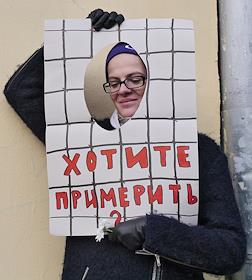 ХОТИТЕ
ПРИМЕРИТЬ
?